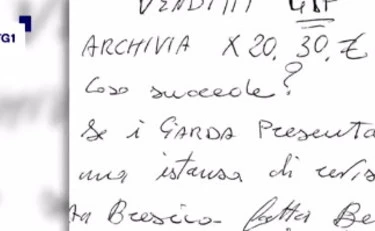 TG1
VENDITTI GIP
ARCHIVIA X 20. 30. €
Cosa succede?
Se i GIARDA Presenta
una istanza di revis
Brescia fatta Be